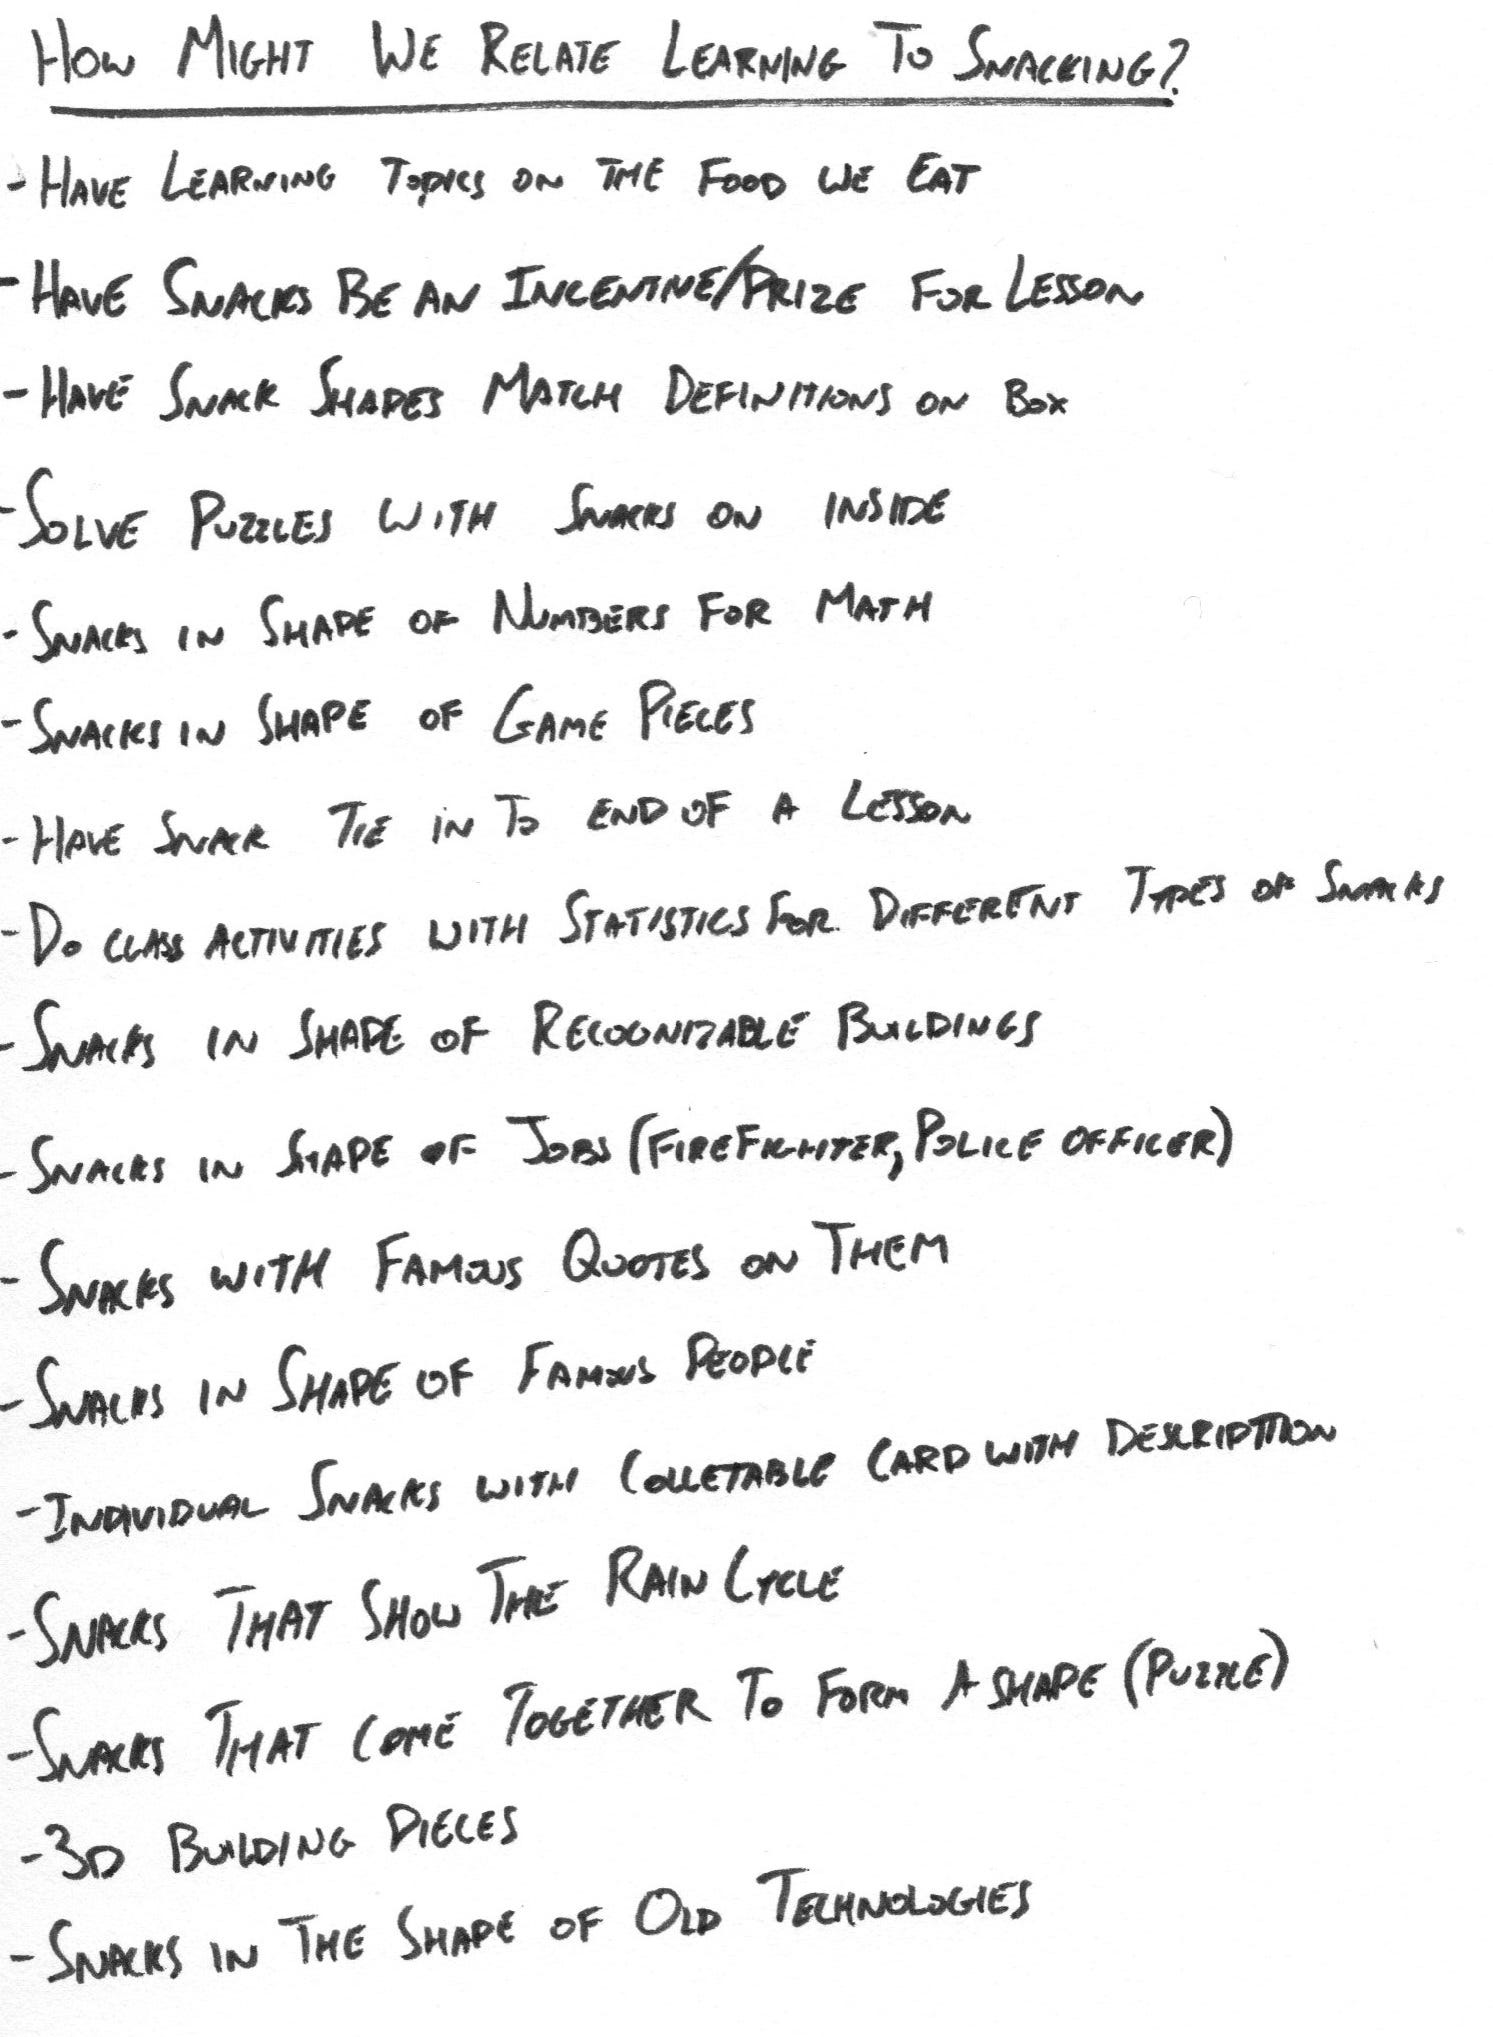 HOW MIGHT WE RELATE LEARNING TO SNACKING?
- HAVE LEARNING TOPICS ON THE FOOD WE EAT
- HAVE SNACKS BE AN INCENTIVE/PRIZE FOR LESSON
- HAVE SNACK SHAPES MATCH DEFINITIONS ON BOX
- SOLVE PUZZLES WITH SNACKS ON INSIDE
- SNACKS IN SHAPE OF NUMBERS FOR MATH
- SNACKS IN SHAPE OF GAME PIECES
- HAVE SNACK TIE IN TO END OF A LESSON
- DO CLASS ACTIVITIES WITH STATISTICS FOR DIFFERENT TYPES OF SNACKS
- SNACKS IN SHAPE OF RECOGNIZABLE BUILDINGS
- SNACKS IN SHAPE OF JOBS (FIREFIGHTER, POLICE OFFICER)
- SNACKS WITH FAMOUS QUOTES ON THEM
- SNACKS IN SHAPE OF FAMOUS PEOPLE
- INDIVIDUAL SNACKS WITH COLLETABLE CARD WITH DESCRIPTION
- SNACKS THAT SHOW THE RAIN CYCLE
- SNACKS THAT COME TOGETHER TO FORM A SHAPE (PUZZLE)
- 3D BUILDING PIECES
- SNACKS IN THE SHAPE OF OLD TECHNOLOGIES